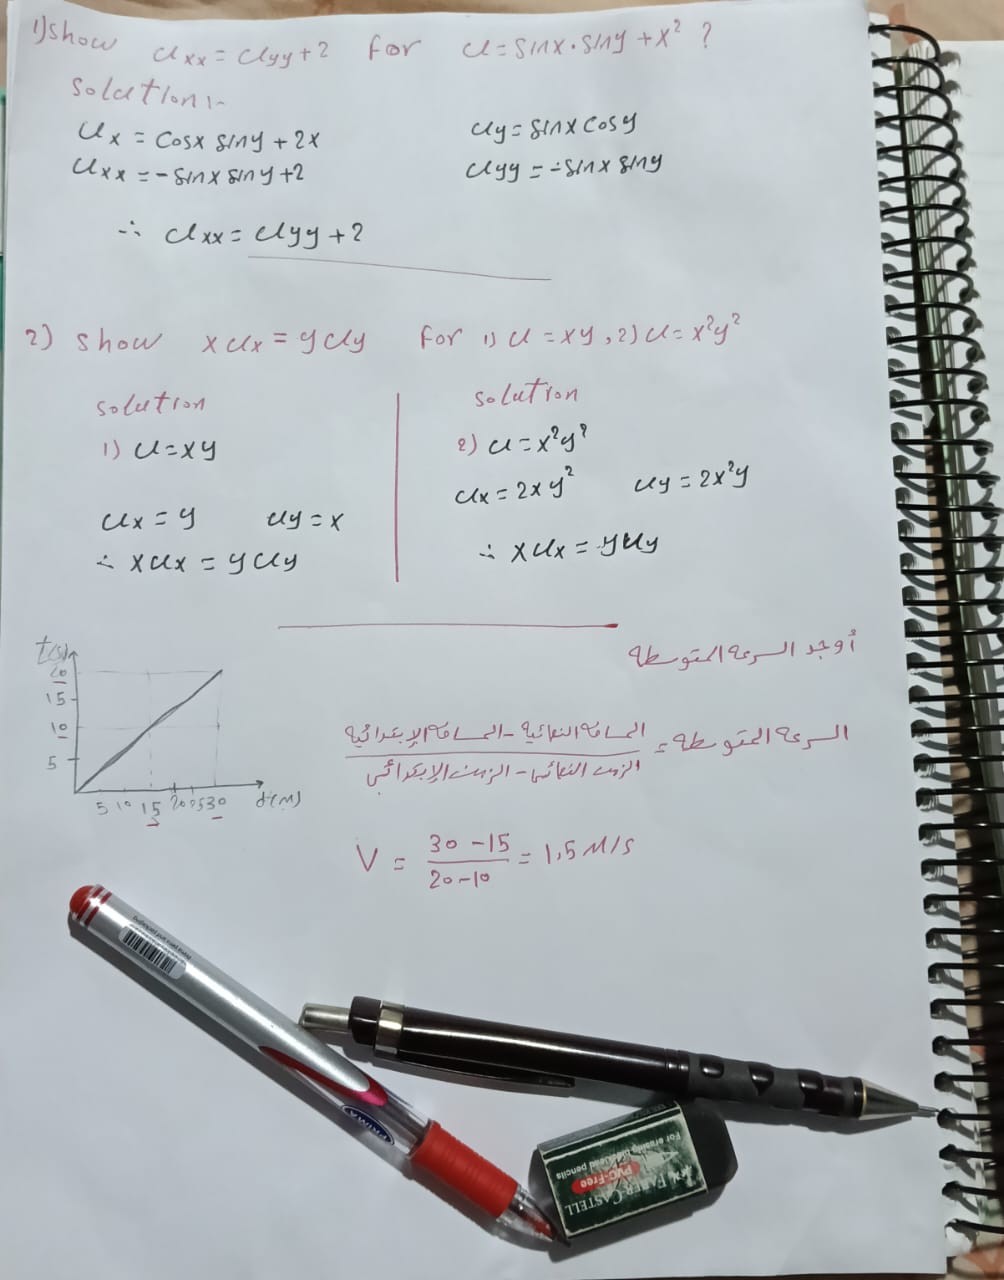 1) show Uxx = Uyy + 2 for U = sinx · siny + x² ?
Solution:-
Ux = cosx siny + 2x
Uy = sinx cosy
Uxx = - sinx siny + 2
Uyy = - sinx siny
∴ Uxx = Uyy + 2
2) show xUx = yUy for 1) U = xy , 2) U = x²y²
solution
1) U = xy
Ux = y Uy = x
∴ xUx = yUy
solution
2) U = x²y²
Ux = 2xy² Uy = 2x²y
∴ xUx = yUy
أوجد السرعة المتوسطة
t(s)
20
15
10
5
5 10 15 20 25 30 d(M)
السرعة المتوسطة = المسافة النهائية - المسافة الإبتدائية
الزمن النهائي - الزمن الإبتدائي
V = 30 - 15 / 20 - 10 = 1,5 M/s
PRIMA
FABER-CASTELL
PVC-Free
For erasing blacklead pencils